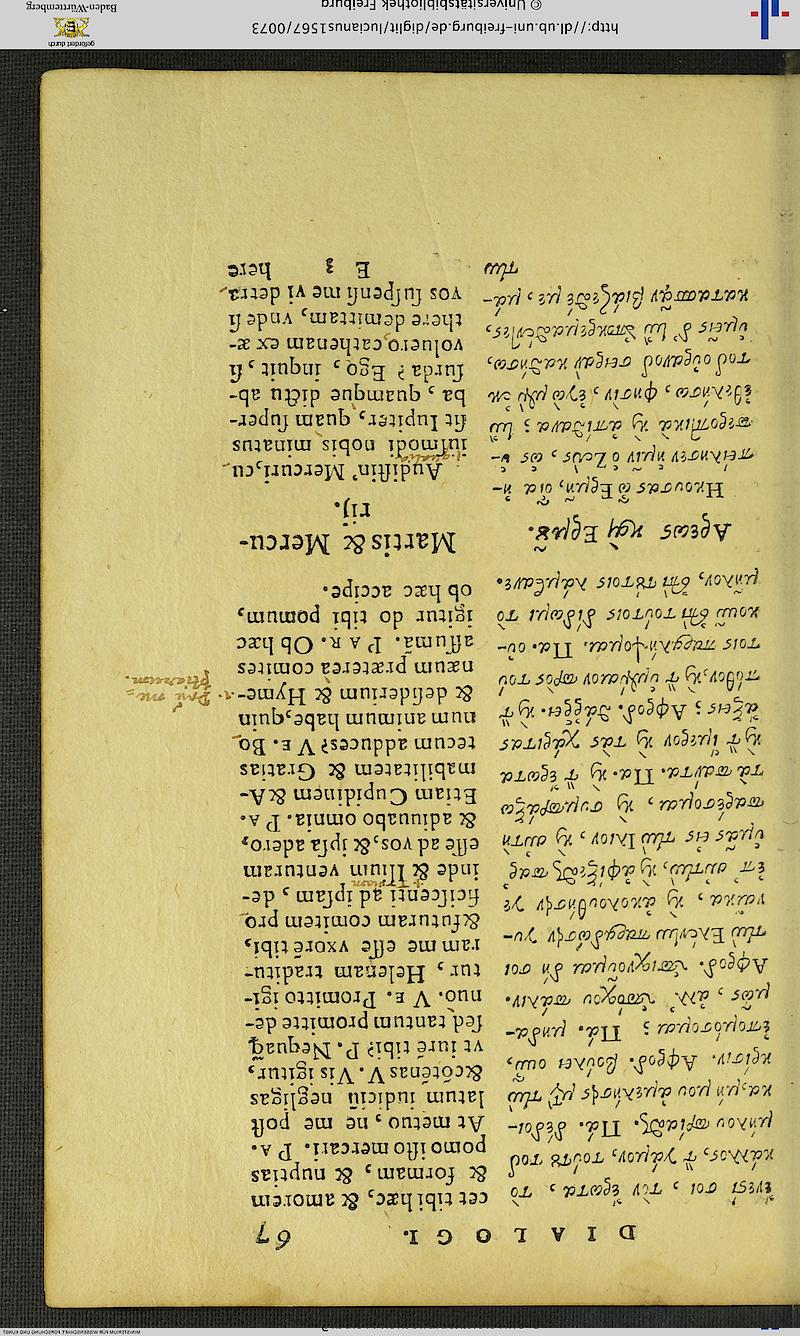 D I A L O G I. 67
ἔνεστί σοι, τὸν ἔρωτα, τὸ
κάλλος, καὶ γάμον, τούτου τοῦ
μήλου πρίασθαι. Πα. δέδοι-
κα, μή μου ἀμελήσῃς μετὰ τὴν
κρίσιν. Ἀφροδ. βούλει οὖν,
ἐπομόσομαι; Πα. μηδα-
μῶς, ἀλλ' ὑπόσχου πάλιν.
Ἀφροδ. ὑπισχνοῦμαι δή σοι
τὴν Ἑλένην παραδώσειν γυ-
ναῖκα, καὶ ἀκολουθήσειν γέ
σοι αὐτὴν, καὶ ἀφίξεσθαι παρ'
ὑμᾶς εἰς τὴν Ἴλιον, καὶ αὐτὴ
παρέσομαι, καὶ συμπράξω
τὰ πάντα. Πα. καὶ τὸν ἔρωτα
καὶ τὸν ἵμερον καὶ τὰς χάριτας
ἄξεις; Ἀφροδ. θάρρει. καὶ τὸν
πόθον, καὶ τὸν ὑμέναιον πρὸς τού-
τοις παραλήψομαι. Πα. οὐκ-
οῦν ἐπὶ τούτοις δίδωμι τὸ
μῆλον, ἐπὶ τούτοις λάμβανε.
Ἄρεως καὶ Ἑρμοῦ.
Ἤκουσας ὦ Ἑρμῆ, οἷα ἠ-
πείλησεν ἡμῖν ὁ Ζεὺς, ὡς ὑ-
περοπτικὰ καὶ ἀπίθανα; ἢν
ἐθελήσω, φησὶν, ἐγὼ μὲν ἐκ
τοῦ οὐρανοῦ σειρὰν καθήσω,
ὑμεῖς δ' ἢν ἀποκρεμασθέντες,
κατασπᾶν βιάζησθέ με, μά-
την
cet tibi hæc, & amorem
& formam, & nuptias
pomo isto mercari. P A.
At metuo, ne me post
latum iudiciũ negligas
& cõtẽnas V. Vis igitur,
vt iure tibi? P. Nequaq̃
sed tantum promitte de-
nuo. V E. Promitto igi-
tur, Helenam traditu-
ram me esse vxorẽ tibi,
& futuram comitem pro
ficiscenti ad ipsam, de-
inde & Ilium venturam
esse ad vos, & ipsa adero,
& adiuuabo omnia. P A.
Etiam Cupidinem & A-
mabilitatem & Gratias
tecum adduces? V E. Bo
num animum habe, quin
& desiderium & Hyme-
næum præterea comites
assumã. P A R. Ob hæc
igitur do tibi pomum,
ob hæc accipe.
Martis & Mercu-
rij.
Audistin', Mercuri, cu
iusmodi nobis minatus
sit Iupiter, quam super-
ba, quamque dictu ab-
surda? Ego, inquit, si
volero, cathenam ex æ-
there demittam, vnde si
vos suspensi me vi detra-
E 3 here
http://dl.ub.uni-freiburg.de/diglit/lucianus1567/0073
© Universitätsbibliothek Freiburg
gefördert durch
Baden-Württemberg
MINISTERIUM FÜR WISSENSCHAFT, FORSCHUNG UND KUNST